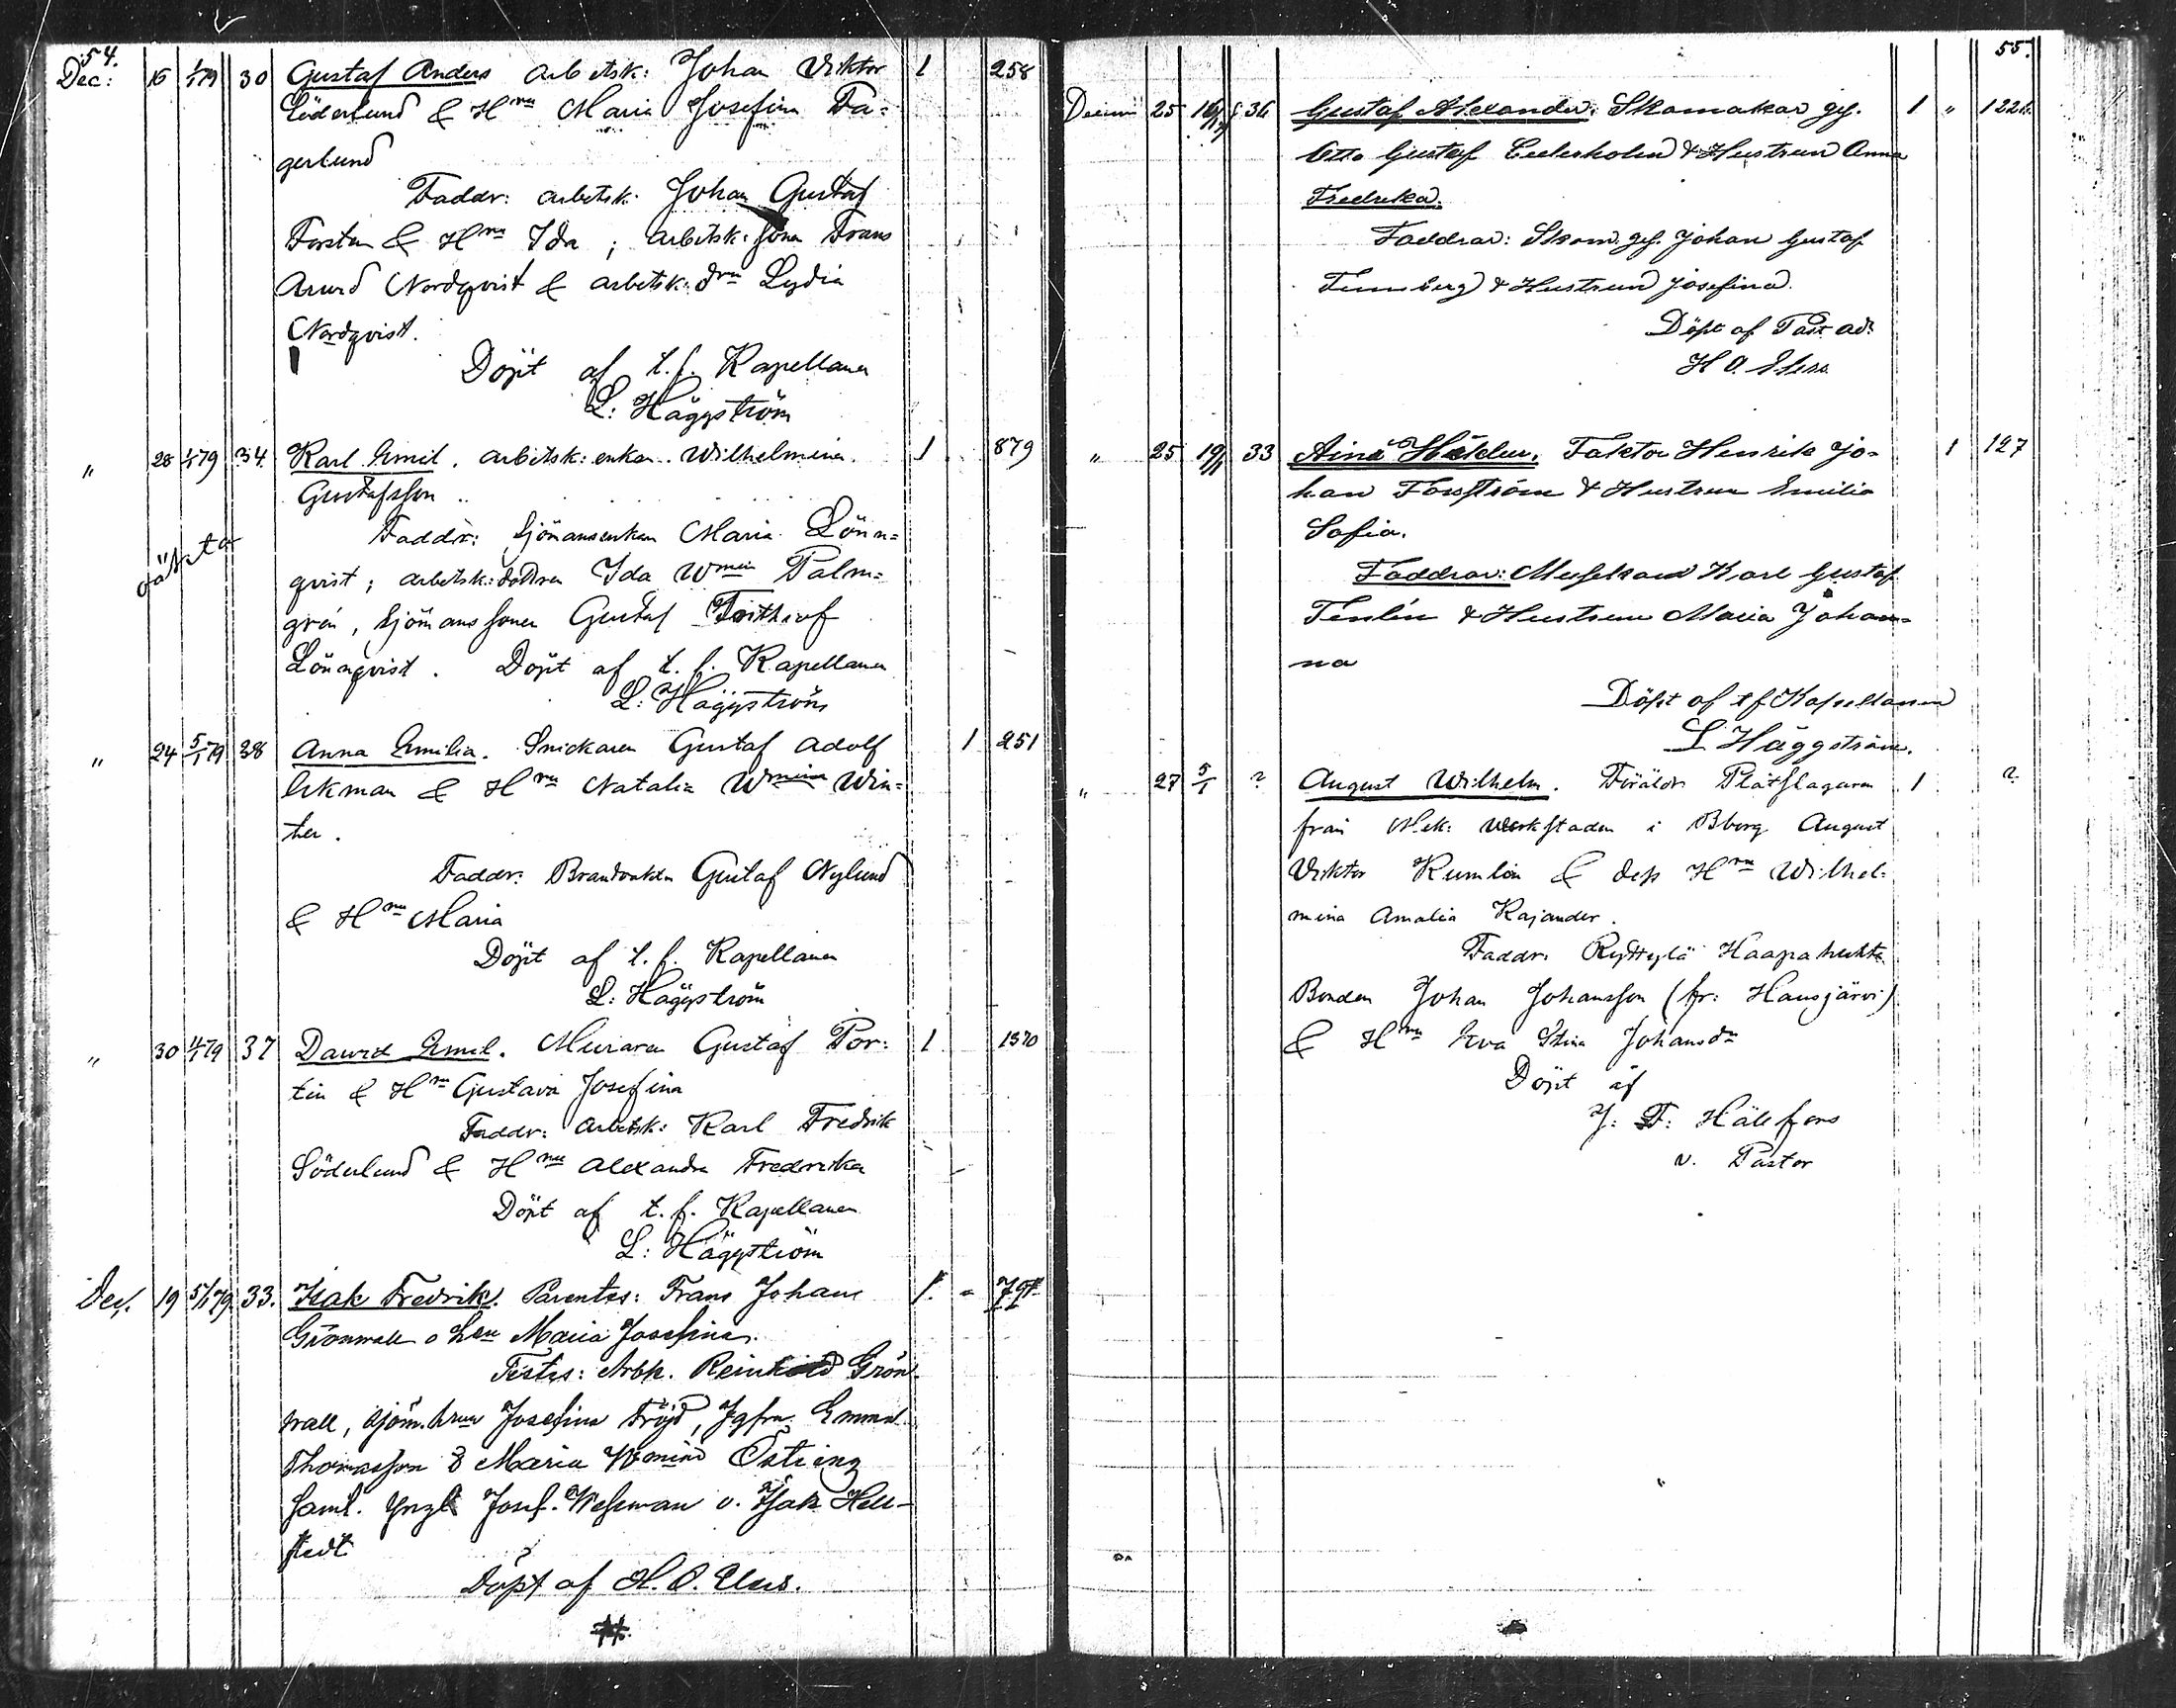 54.
Dec: 15 1/1 79 30 Gustaf Anders arbetsk: Johan Viktor 1 258
Söderlund & Hru Maria Josefina Fa=
gerlund
Faddr: arbetsk. Johan Gustaf
& Hru Ida ; arbetsk: sonen Frans
Nordqvist & arbetsk: Lydia
Nordqvist.
Döpt af t. f. Kapellanen
L: Häggström
" 28 1/1 79 34. Karl Emil. arbetsk: enkan Wilhelmina 1 879
Gustafsson
oäkta
Faddr: Sjömansenkan Maria Lönn=
qvist; arbetsk: dottren Ida Wmina Palm=
grén, Sjömanssonen Gustaf Frithiof
Lönnqvist. Döpt af t. f. Kapellanen
L: Häggström
" 24 5/1 79 38 Anna Emilia. Snickaren Gustaf Adolf 1 251
Ekman & Hru Natalia Wmina Win=
ter.
Faddr: Brandvakten Gustaf Nylund
& Hru Maria
Döpt af t. f. Kapellanen
L: Häggström
" 30 4/1 79 37 David Emil. Muraren Gustaf Por= 1 1370
tin & Hru Gustava Josefina
Faddr: arbetsk: Karl Fredrik
Söderlund & Hru Alexandra Fredrika
Döpt af t. f. Kapellanen
L: Häggström
Dec. 19 5/1 79. 33. Isak Fredrik. Parentes: Frans Johan 1. "
Grönwall o hru Maria Josefina.
Testes: Arbk. Reinhold Grön
wall, sjöm. hrun Josefina Fröjd, Jgfrn. Emma
Thomasson & Maria Wmina Östring
saml. Yngl. Josef. Wessman o. Isak Hell-
stedt
Döpt af H. O. Elers.
55.
25 36 Gustaf Alexander. Skomakar ges. 1 " 122
Otto Gustaf Cederholm & Hustrun Anna
Fredrika.
Faddrar: Skom. ges. Johan Gustaf
Tennberg & Hustrun Josefina.
Döpt af Past. adj.
H O. Elers.
" 25 19/1 33 Aina Faktor Henrik Jo= 1 127
han Forsström & Hustrun Emilia
Sofia.
Faddrar: Karl Gustaf
& Hustrun Maria Johan=
na
Döpt af tf Kapellanen
L Häggström.
" 27 5/1 ? August Wilhelm. Föräldr. Plåtslagaren 1 ?
från Mek: Werkstaden i Bborg August
Viktor Rumlin & dess Hru Wilhel=
mina Amalia Kajander.
Faddr. Ryttylä Haapahuhta
Bonden Johan Johansson (fr: Hausjärvi)
& Hru Eva Stina Johansdr
Döpt af
J: F: Hällfors
v. Pastor